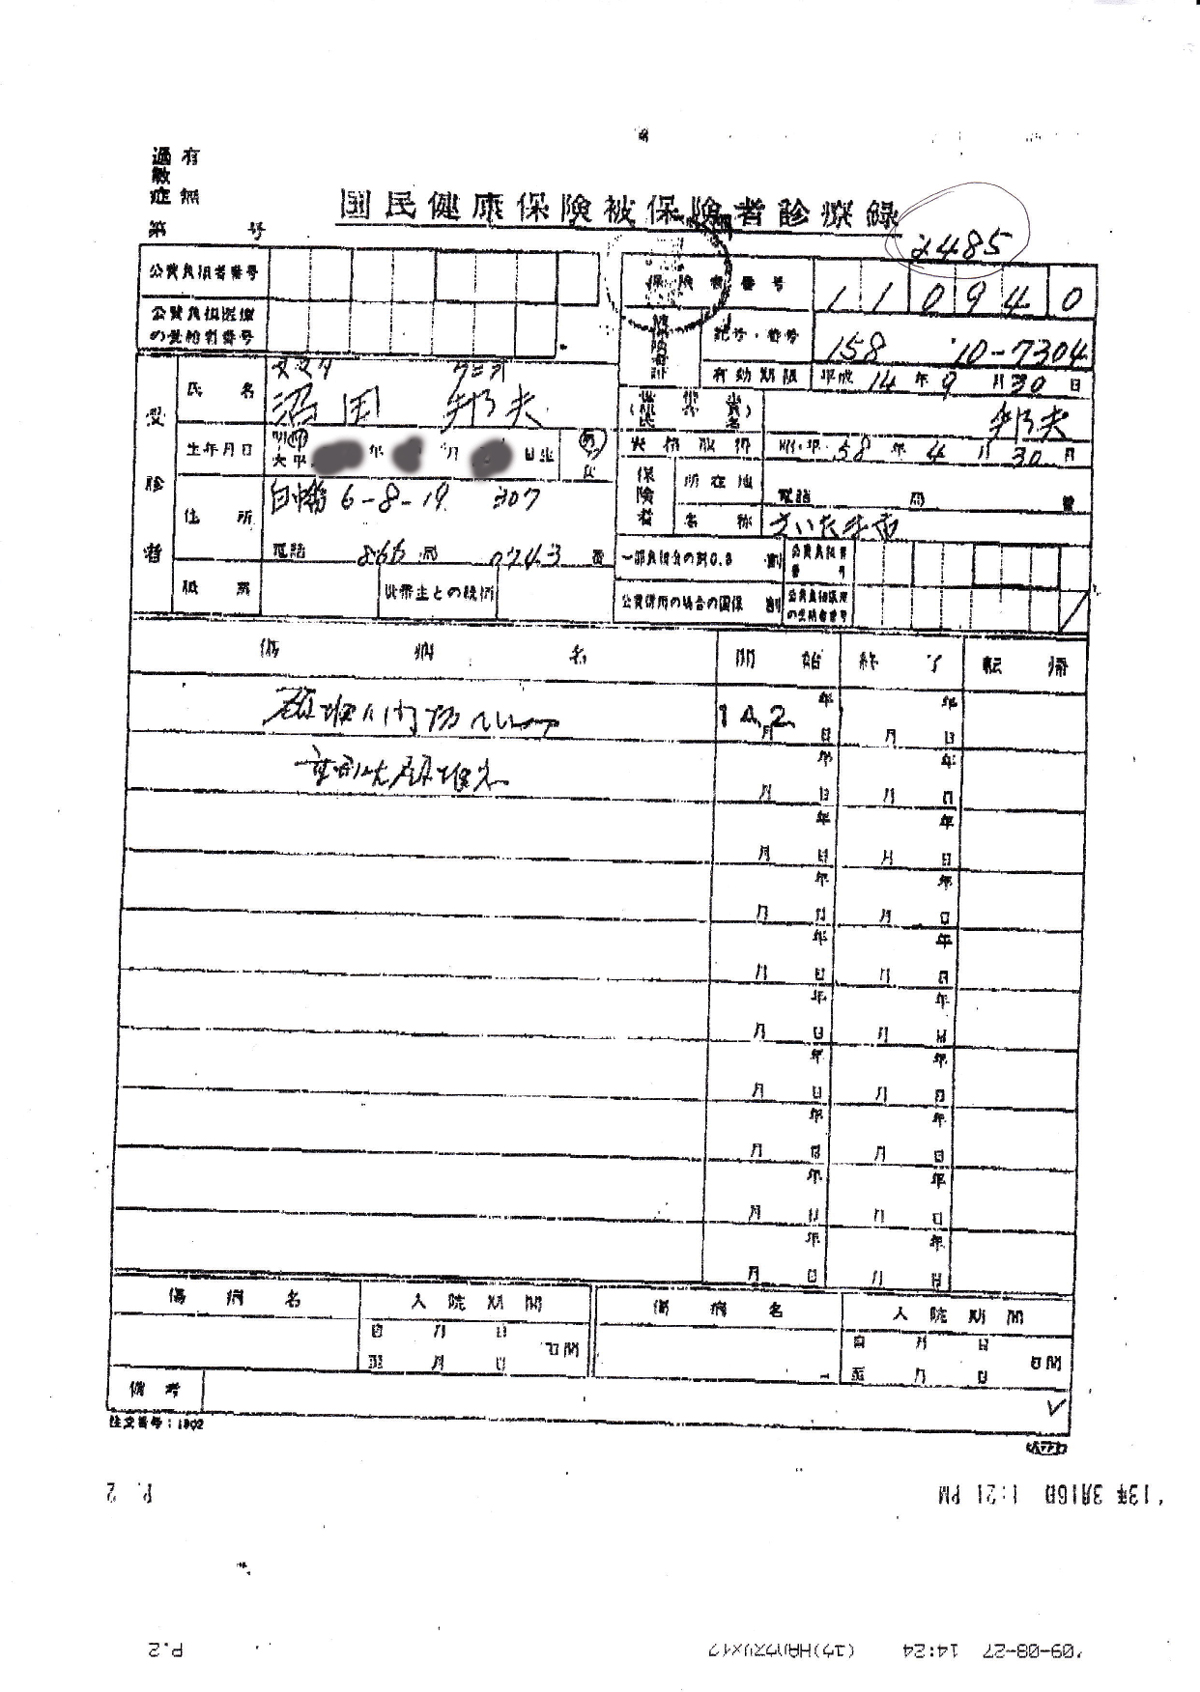 過敏症 有
無
国民健康保険被保険者診療録
2485
第 号
公費負担者番号
公費負担医療の受給者番号
保険者番号 1 1 0 9 4 0
被保険者証 記号・番号 158 10-7304
有効期限 平成 14年 9月 30日
受診者
氏名 ヌマタ クニオ
沼田 邦夫
生年月日 明 昭 大 平 年 月 日生 男 女
住所 6-8-19 307
電話 866局 0243番
職業 世帯主との続柄
世帯主(組合員)氏名 邦夫
資格取得 昭・平 58年 4月 30日
保険者 所在地 電話 局 番
名称 さいたま市
一部負担金の割合 割
公費負担者番号
公費併用の場合の国保 割
公費負担医療の受給者番号
傷病名 開始 終了 転帰
14.2 年 月 日 年 月 日
年 月 日 年 月 日
年 月 日 年 月 日
年 月 日 年 月 日
年 月 日 年 月 日
年 月 日 年 月 日
年 月 日 年 月 日
年 月 日 年 月 日
年 月 日 年 月 日
年 月 日 年 月 日
傷病名 入院期間 傷病名 入院期間
自 月 日 日間 自 月 日 日間
至 月 日 至 月 日
備考
注文番号:1302
'13年 3月16日 1:21 PM P. 2
'09-08-27 14:24 P.2